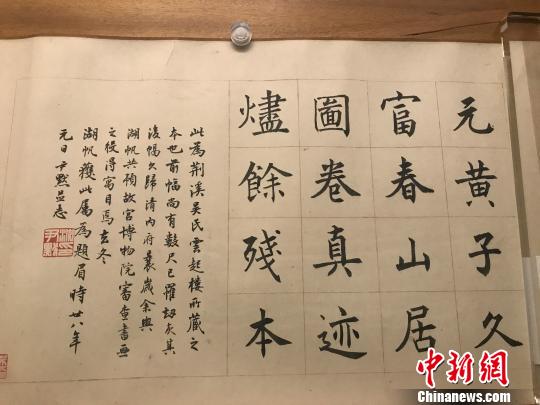 元黄子久
富春山居
圖卷真迹
燼餘殘本
此為荆溪吳氏雲起樓所藏之
本也前幅尚有數尺已罹劫灰其
後幅久歸清内府曩歲余與
湖帆共預故宫博物院審查書畫
之役得寓目焉去冬
湖帆獲此屬為題眉時廿八年
元日尹默並志
中新网
Chinanews.com